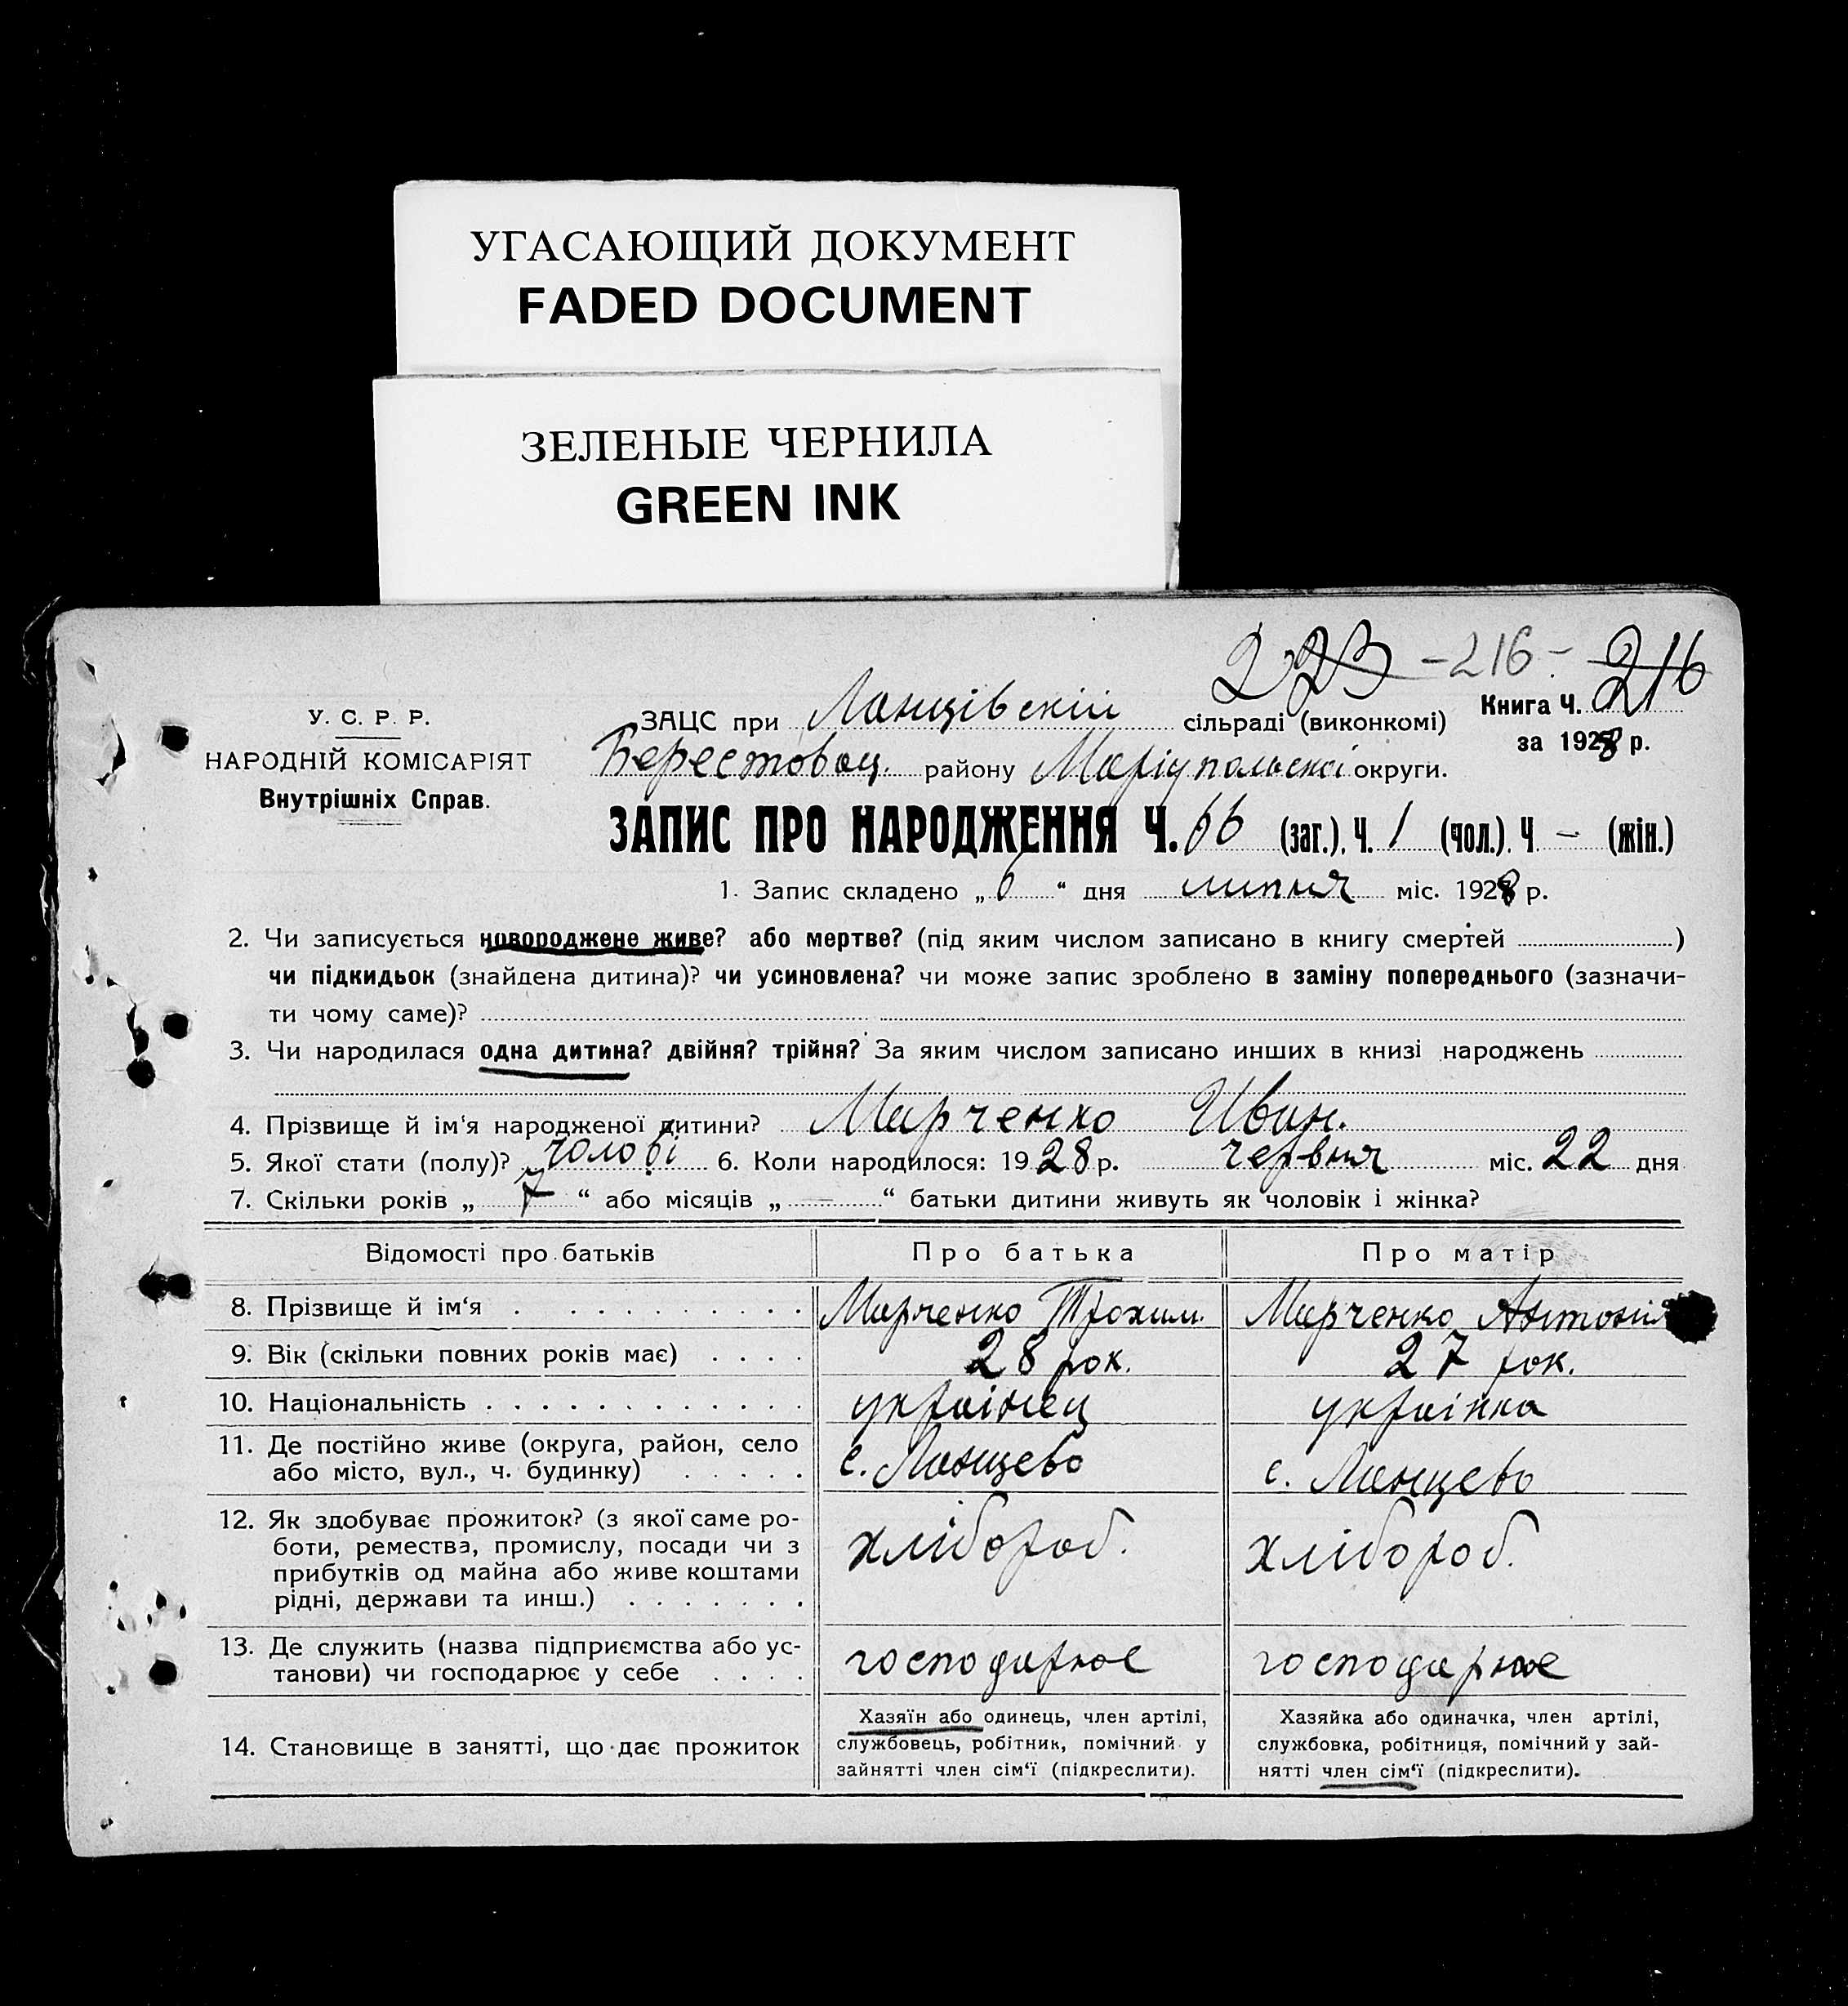 УГАСАЮЩИЙ ДОКУМЕНТ
FADED DOCUMENT
ЗЕЛЕНЫЕ ЧЕРНИЛА
GREEN INK
223 -216- 216
У. С. Р. Р.
НАРОДНІЙ КОМІСАРІЯТ
Внутрішніх Справ.
ЗАЦС при Ланцівскій сільраді (виконкомі)
Книга Ч. 216
за 1928 р.
Берестовец. району Маріупольскої округи.
ЗАПИС ПРО НАРОДЖЕННЯ Ч. 66 (заг.). Ч. 1 (чол.). Ч. — (жін.)
1. Запис складено „ 6 “ дня липня міс. 1928 р.
2. Чи записується новороджене живе? або мертве? (під яким числом записано в книгу смертей )
чи підкидьок (знайдена дитина)? чи усиновлена? чи може запис зроблено в заміну попереднього (зазначи-
ти чому саме)?
3. Чи народилася одна дитина? двійня? трійня? За яким числом записано инших в книзі народжень
4. Прізвище й ім‘я народженої дитини? Марченко Иван.
5. Якої стати (полу)? чолові 6. Коли народилося: 1928 р. червня міс. 22 дня
7. Скільки років „ 7 “ або місяців „ — “ батьки дитини живуть як чоловік і жінка?
Відомості про батьків Про батька Про матір
8. Прізвище й ім‘я . Марченко Трохим. Марченко Антонія
9. Вік (скільки повних років має) 28 рок. 27 рок.
10. Національність українец українка
11. Де постійно живе (округа, район, село
або місто, вул., ч. будинку) с. Ланцево с. Ланцево
12. Як здобуває прожиток? (з якої саме ро-
боти, ремества, промислу, посади чи з
прибутків од майна або живе коштами
рідні, держави та инш.) хлібороб. хлібороб.
13. Де служить (назва підприємства або ус-
танови) чи господарює у себе господарює господарює
14. Становище в занятті, що дає прожиток
Хазяїн або одинець, член артілі,
службовець, робітник, помічний у
зайнятті член сім‘ї (підкреслити).
Хазяйка або одиначка, член артілі,
службовка, робітниця, помічний у зай-
нятті член сім‘ї (підкреслити).